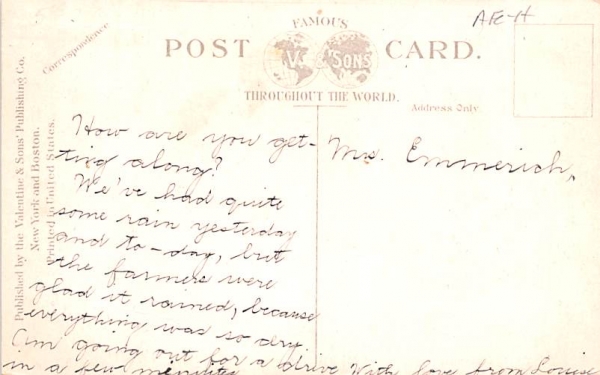 AE-H
FAMOUS
POST CARD.
V. & SONS
THROUGHOUT THE WORLD.
Correspondence
Address Only
Published by the Valentine & Sons' Publishing Co.
New York and Boston.
Printed in United States.
How are you get-
ting along?
We've had quite
some rain yesterday
and to-day, but
the farmers were
glad it rained, because
everything was so dry.
Am going out for a drive
in a few minutes
With love from Louise
Mrs. Emmerich,